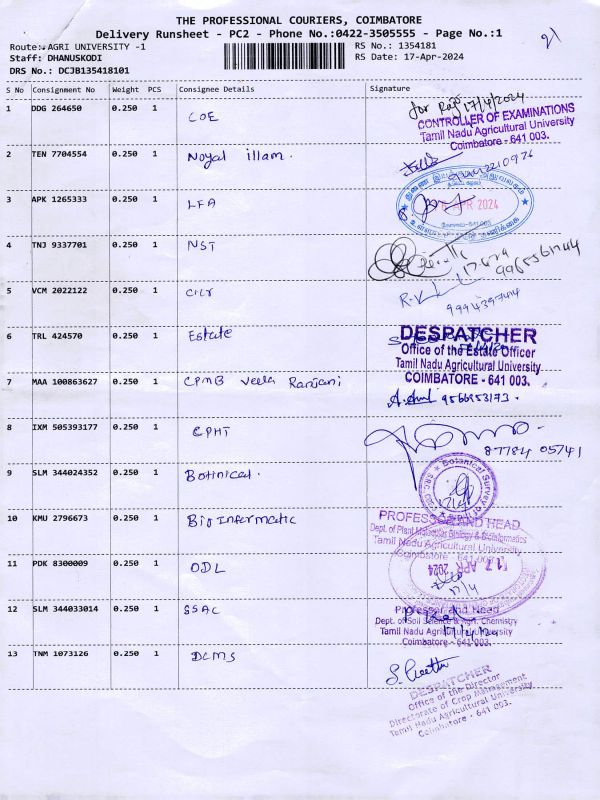 THE PROFESSIONAL COURIERS, COIMBATORE
Delivery Runsheet - PC2 - Phone No.:0422-3505555 - Page No.:1
Route: AGRI UNIVERSITY -1
RS No.: 1354181
Staff: DHANUSKODI
RS Date: 17-Apr-2024
DRS No.: DCJB135418101
S No Consignment No Weight PCS Consignee Details Signature
1 DDG 264650 0.250 1 COE
17/4/2024
CONTROLLER OF EXAMINATIONS
Tamil Nadu Agricultural University
Coimbatore - 641 003.
2 TEN 7704554 0.250 1 Noyal illam.
3 APK 1265333 0.250 1 LFA
APR 2024
4 TNJ 9337701 0.250 1 NST
5 VCM 2022122 0.250 1
6 TRL 424570 0.250 1 Estate
DESPATCHER
Office of the Estate Officer
Tamil Nadu Agricultural University
COIMBATORE - 641 003.
7 MAA 100863627 0.250 1 CPMB Veela Ranjani
9566953173.
8 IXM 505393177 0.250 1 CPHT
87784 05741
9 SLM 344024352 0.250 1 Botinical.
Botanical Survey of
10 KMU 2796673 0.250 1 Bio Informatic
PROFESSOR AND HEAD
Dept. of Plant Molecular Biology & Bioinformatics
Tamil Nadu Agricultural University
Coimbatore - 641 003
11 PDK 8300009 0.250 1 ODL
17 APR 2024
17/4
12 SLM 344033014 0.250 1 SSAC
Professor and Head
Dept. of Soil Science & Agri. Chemistry
Tamil Nadu Agricultural University
Coimbatore - 641 003.
13 TNM 1073126 0.250 1 DCMS
S. Geetha
DESPATCHER
Office of the Director
Directorate of Crop Management
Tamil Nadu Agricultural University
Coimbatore - 641 003.